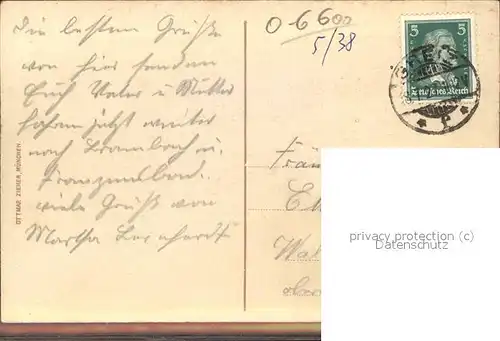 Die besten Grüße
von hier senden
Euch Vater u Mutter
fahren jetzt weiter
nach Brambach u.
Franzensbad.
viele Grüße von
Martha
OTTMAR ZIEHER, MÜNCHEN.
06600
5/38
5 5
Deutsches Reich
GREIZ
Frä
Wal
privacy protection (c)
Datenschutz